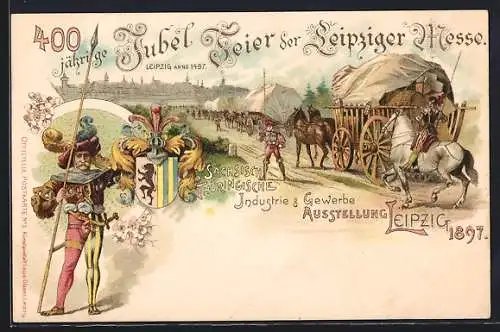 400
jährige Jubel Feier der Leipziger Messe.
LEIPZIG ANNO 1497.
SÄCHSISCH
THÜRINGISCHE
Industrie & Gewerbe
AUSSTELLUNG
LEIPZIG
1897.
OFFICIELLE POSTKARTE No